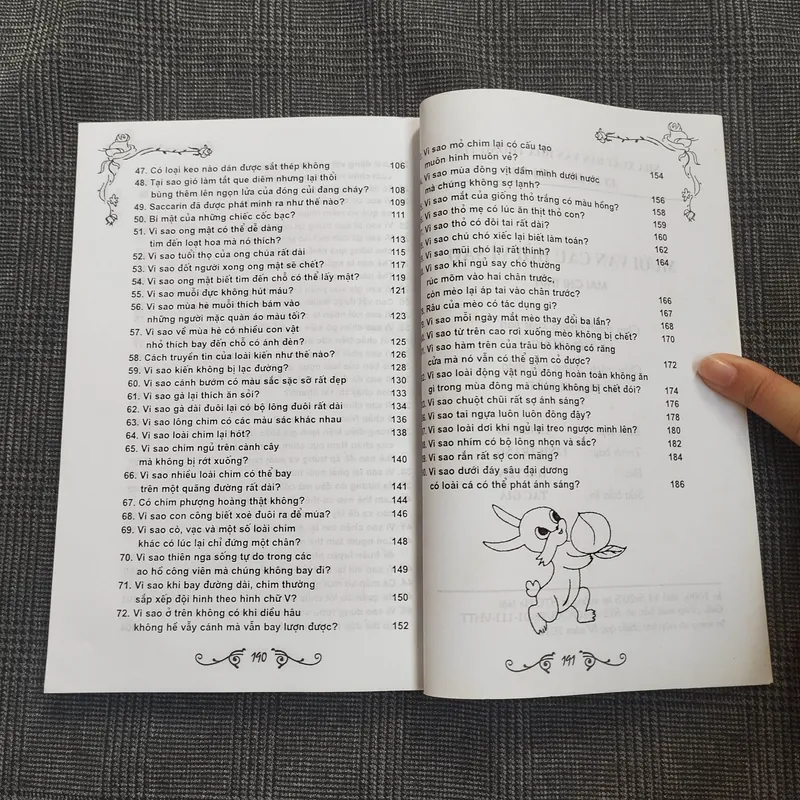 47. Có loại keo nào dán được sắt thép không 106
48. Tại sao gió làm tắt que diêm nhưng lại thổi
bùng thêm lên ngọn lửa của đóng củi đang cháy? 108
49. Saccarin đã được phát minh ra như thế nào? 109
50. Bí mật của những chiếc cốc bạc? 111
51. Vì sao ong mật có thể dễ dàng
tìm đến loạt hoa mà nó thích? 113
52. Vì sao tuổi thọ của ong chúa rất dài 115
53. Vì sao đốt người xong ong mật sẽ chết? 117
54. Vì sao ong mật biết tìm đến chỗ có thể lấy mật? 119
55. Vì sao muỗi đực không hút máu? 121
56. Vì sao mùa hè muỗi thích bám vào
những người mặc quần áo màu tối? 123
57. Vì sao về mùa hè có nhiều con vật
nhỏ thích bay đến chỗ có ánh đèn? 125
58. Cách truyền tin của loài kiến như thế nào? 126
59. Vì sao kiến không bị lạc đường? 128
60. Vì sao cánh bướm có màu sắc sặc sỡ rất đẹp 130
61. Vì sao gà lại thích ăn sỏi? 133
62. Vì sao gà dải đuôi lại có bộ lông đuôi rất dài 134
63. Vì sao lông chim có các màu sắc khác nhau 136
64. Vì sao loài chim lại hót? 138
65. Vì sao chim ngủ trên cành cây
mà không bị rớt xuống? 140
66. Vì sao nhiều loài chim có thể bay
trên một quãng đường rất dài? 141
67. Có chim phượng hoàng thật không? 144
68. Vì sao con công biết xoè đuôi ra để múa? 146
69. Vì sao cò, vạc và một số loài chim
khác có lúc lại chỉ đứng một chân? 148
70. Vì sao thiên nga sống tự do trong các
ao hồ công viên mà chúng không bay đi? 149
71. Vì sao khi bay đường dài, chim thường
sắp xếp đội hình theo hình chữ V? 150
72. Vì sao ở trên không có khi diều hâu
không hề vẫy cánh mà vẫn bay lượn được? 152
190
Vì sao mỏ chim lại có cấu tạo
muôn hình muôn vẻ?
Vì sao mùa đông vịt dầm mình dưới nước 154
mà chúng không sợ lạnh?
Vì sao mắt của giống thỏ trắng có màu hồng? 156
Vì sao thỏ mẹ có lúc ăn thịt thỏ con? 158
Vì sao thỏ có đôi tai rất dài? 159
Vì sao chú chó xiếc lại biết làm toán? 160
Vì sao mũi chó lại rất thính? 162
Vì sao khi ngủ say chó thường 164
rúc mõm vào hai chân trước,
còn mèo lại áp tai vào chân trước?
Râu của mèo có tác dụng gì? 166
Vì sao mỗi ngày mắt mèo thay đổi ba lần? 167
Vì sao từ trên cao rơi xuống mèo không bị chết? 168
Vì sao hàm trên của trâu bò không có răng 170
cửa mà nó vẫn có thể gặm cỏ được?
172
Vì sao loài động vật ngủ đông hoàn toàn không ăn
gì trong mùa đông mà chúng không bị chết đói? 174
Vì sao chuột chũi rất sợ ánh sáng? 176
Vì sao tai ngựa luôn luôn động đậy? 178
Vì sao loài dơi khi ngủ lại treo ngược mình lên? 180
Vì sao nhím có bộ lông nhọn và sắc? 182
Vì sao rắn rất sợ con măng? 184
Vì sao dưới đáy sâu đại dương
có loài cá có thể phát ánh sáng? 186
191